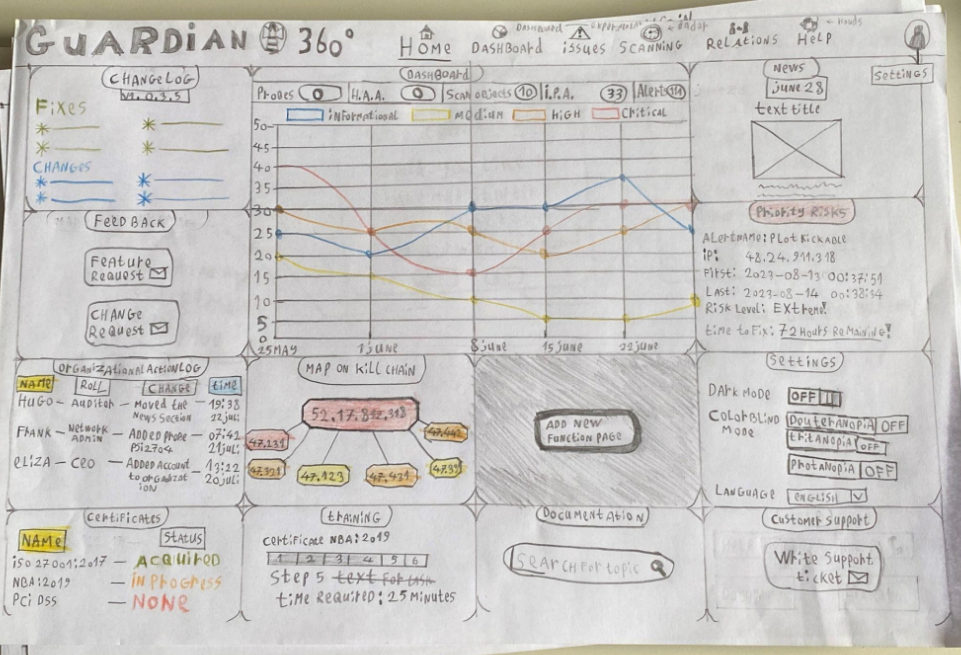 GUARDIAN 360°
HOME DASHBOARD issues SCANNING RELATIONS Help
Settings
CHANGELOG
V1.0.3.5
Fixes
CHANGES
DASHBOARD
Probes 0 H.A.A. 0 Scan objects 10 i.P.A. 33 Alerts
informational Medium High Critical
50
45
40
35
30
25
20
15
10
5
0
25 MAY 1 june 8 june 15 june 22 june
News
june 28
text title
FeedBACK
Feature
Request
CHANGE
Request
Priority Risks
ALertNAMe: PLot KickABLe
iP: 48.24.911.318
First: 2023-08-13 00:37:51
Last: 2023-08-14 00:38:54
Risk Level: EXtreme!
time to Fix: 72 Hours ReMAiNiNG!
OrGANizAtioNAL ActionLOG
NAMe RoLL CHANGE time
HuGo - Auditor - Moved the News Section 19:38 22 juli
FRANK - Network ADMiN - ADDeD Probe PSi2704 07:42 21 juli
eLiZA - Ceo - ADDeD Account to orGANiZAtiON 13:22 20 juli
MAP ON KiLL CHAiN
52.17.812.318
47.231
47.321
47.123
47.421
47.442
ADD NEW
Function PAGE
Settings
DARK MODE OFF
COLORBLIND MODE Deuteranopia OFF
tritanopia OFF
Protanopia OFF
LANGUAGE eNGLiSH
Certificates
NAMe Status
iso 27001:2017 — ACQUiReD
NBA:2019 — iN PROGRESS
PCi DSS — NONE
tRAiNiNG
certificate NBA:2019
1 2 3 4 5 6
Step 5 text FOR tASK
time Required: 25 Minutes
DocumentAtioN
SeARCH FOR topic
Customer Support
Write Support
ticket